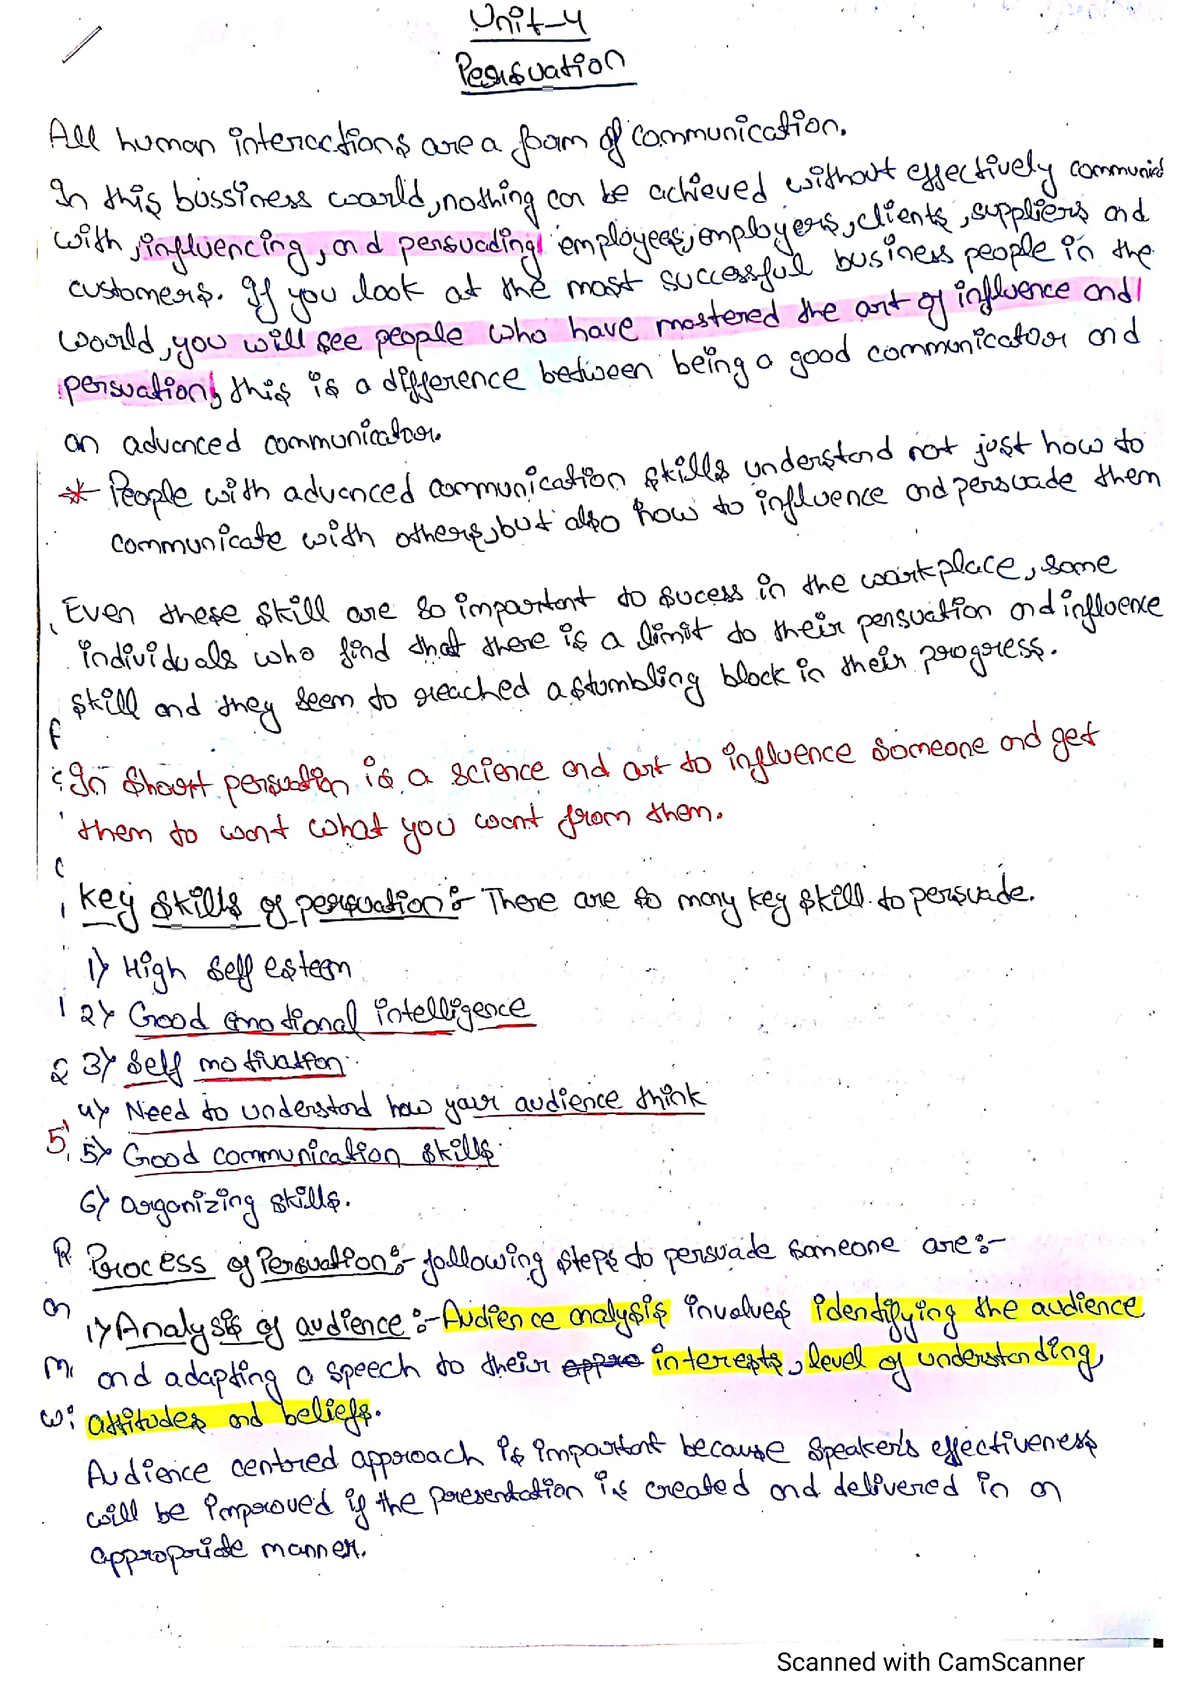 Unit-4
Persuation
All human interactions are a form of communication.
In this bussiness world, nothing can be achieved without effectively communict
with, influencing, and persuading employees, employers, clients, suppliers and
customers. If you look at the most successful business people in the
world, you will see people who have mastered the art of influence and
persuation, this is a difference between being a good communicator and
an advanced communicator.
* People with advanced communication skills understand not just how to
communicate with others, but also how to influence and persuade them
Even these skill are so important to sucess in the workplace, some
individuals who find that there is a limit to their persuation and influence
skill and they seem to reached a stumbling block in their progress.
f
c In short persuation is a science and art to influence someone and get
them to want what you want from them.
c
Key skills of persuation:- There are so many key skill to persuade.
1) High self esteem
1 2) Good emotional intelligence
2 3) Self motivation
4) Need to understand how your audience think
5, 5) Good communication skills
6) organizing skills.
R Process of Persuation:- following steps to persuade someone are:-
on 1) Analysis of audience:- Audience analysis involves identifying the audience
mi and adapting a speech to their appro interests, level of understanding,
wi attitudes and beliefs.
Audience centred approach is important because speaker's effectiveness
will be improved if the presentation is created and delivered in an
appropride manner.
Scanned with CamScanner